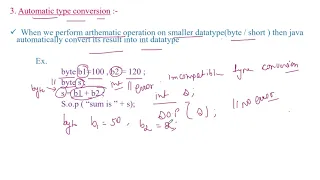 3. Automatic type conversion :-
✓ When we perform arthematic operation on smaller datatype(byte / short ) then java
automatically convert its result into int datatype
Ex.
byte b1=100 , b2= 120 ;
byte s; // error. Incompatible type conversion
s= b1 + b2 ; int int s;
S.o.p ( "sum is " + s); SOP ( s ) ; // no error
byte b1 = 50 , b2 =